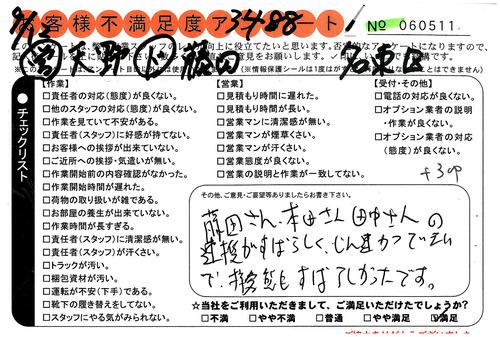 お客様不満足度アンケート!
3488
No 060511
9/13
営 天野 田 藤田
名東区
チェックリスト
【作業】
□責任者の対応(態度)が良くない。
□他のスタッフの対応(態度)が良くない。
□作業を見ていて不安がある。
□責任者(スタッフ)に好感が持てない。
□お客様への挨拶が出来ていない。
□ご近所への挨拶・気遣いが無い。
□作業開始前の内容確認がなかった。
□作業開始時間が遅れた。
□荷物の取り扱いが雑である。
□お部屋の養生が出来ていない。
□作業時間が長すぎる。
□責任者(スタッフ)に清潔感が無い。
□責任者(スタッフ)が汗くさい。
□トラックが汚い。
□梱包資材が汚い。
□運転が不安(下手)である。
□靴下の履き替えをしてない。
□スタッフにやる気がみられない。
【営業】
□見積もり時間に遅れた。
□見積もり時間が長い。
□営業マンに清潔感が無い。
□営業マンが煙草くさい。
□営業マンが汗くさい。
□営業態度が良くない。
□営業の説明と作業が一致してない。
【受付・その他】
□電話の対応が良くない。
□オプション業者の説明
・作業が良くない。
□オプション業者の対応
(態度)が良くない。
+30P
その他、ご意見・ご要望等ありましたらお書き下さい。
藤田さん、本田さん、田中さんの
連携がすばらしく、じん速かつていねい
で、接客もすばらしかったです。
☆当社をご利用いただきまして、ご満足いただけたでしょうか?
□不満 □やや不満 □普通 □やや満足 ☑満足